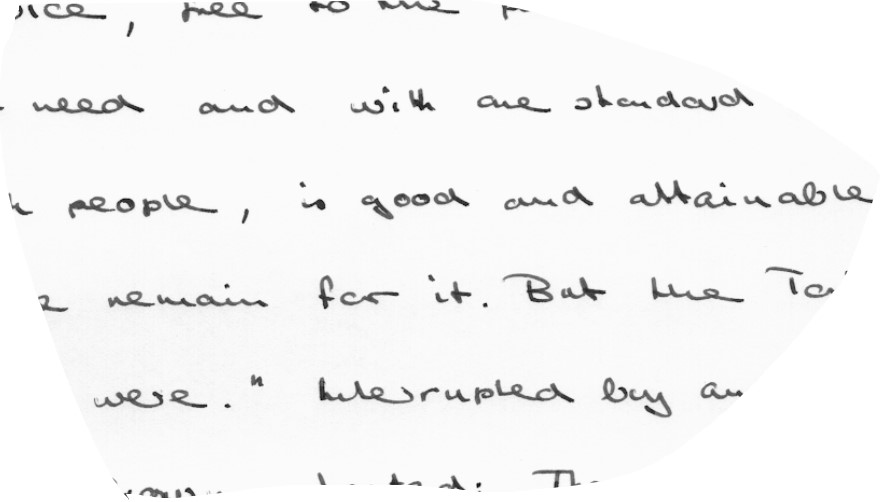 free to the
need and with one standard
people, is good and attainable
remain for it. But the
were." Interrupted by